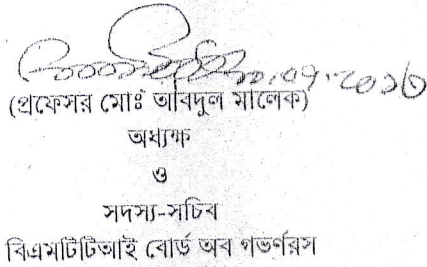 (প্রফেসর মোঃ আবিদুল মালেক)
অধ্যক্ষ
ও
সদস্য-সচিব
বিএমটিটিআই বোর্ড অব গভর্ণরস